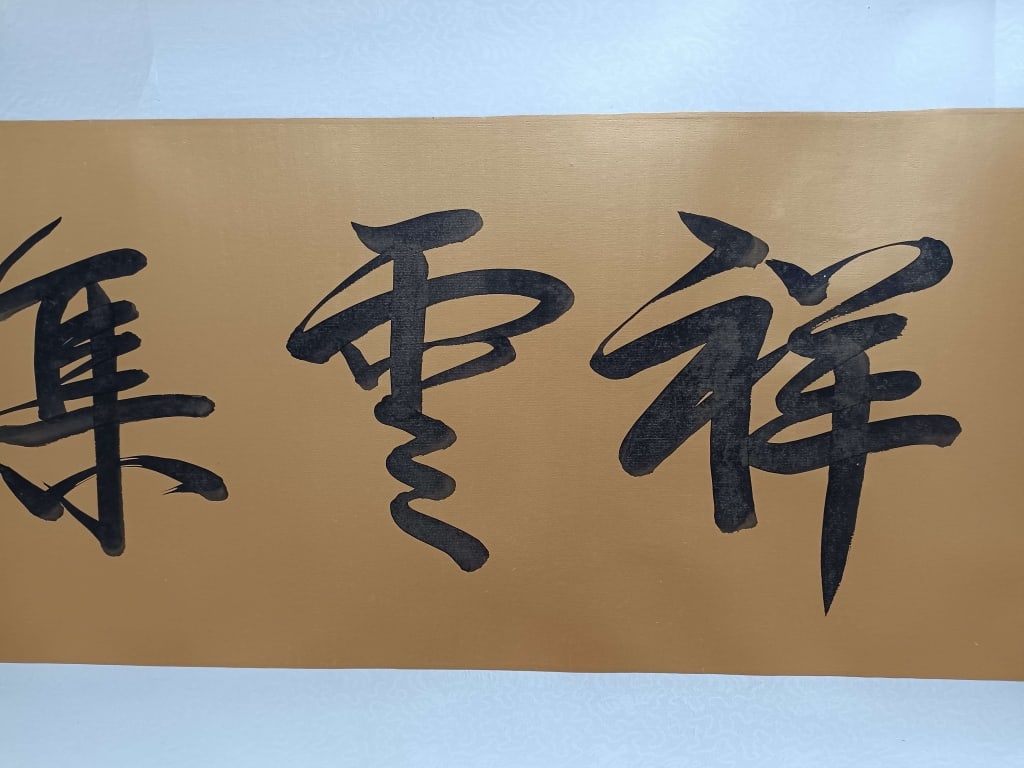 祥雲集